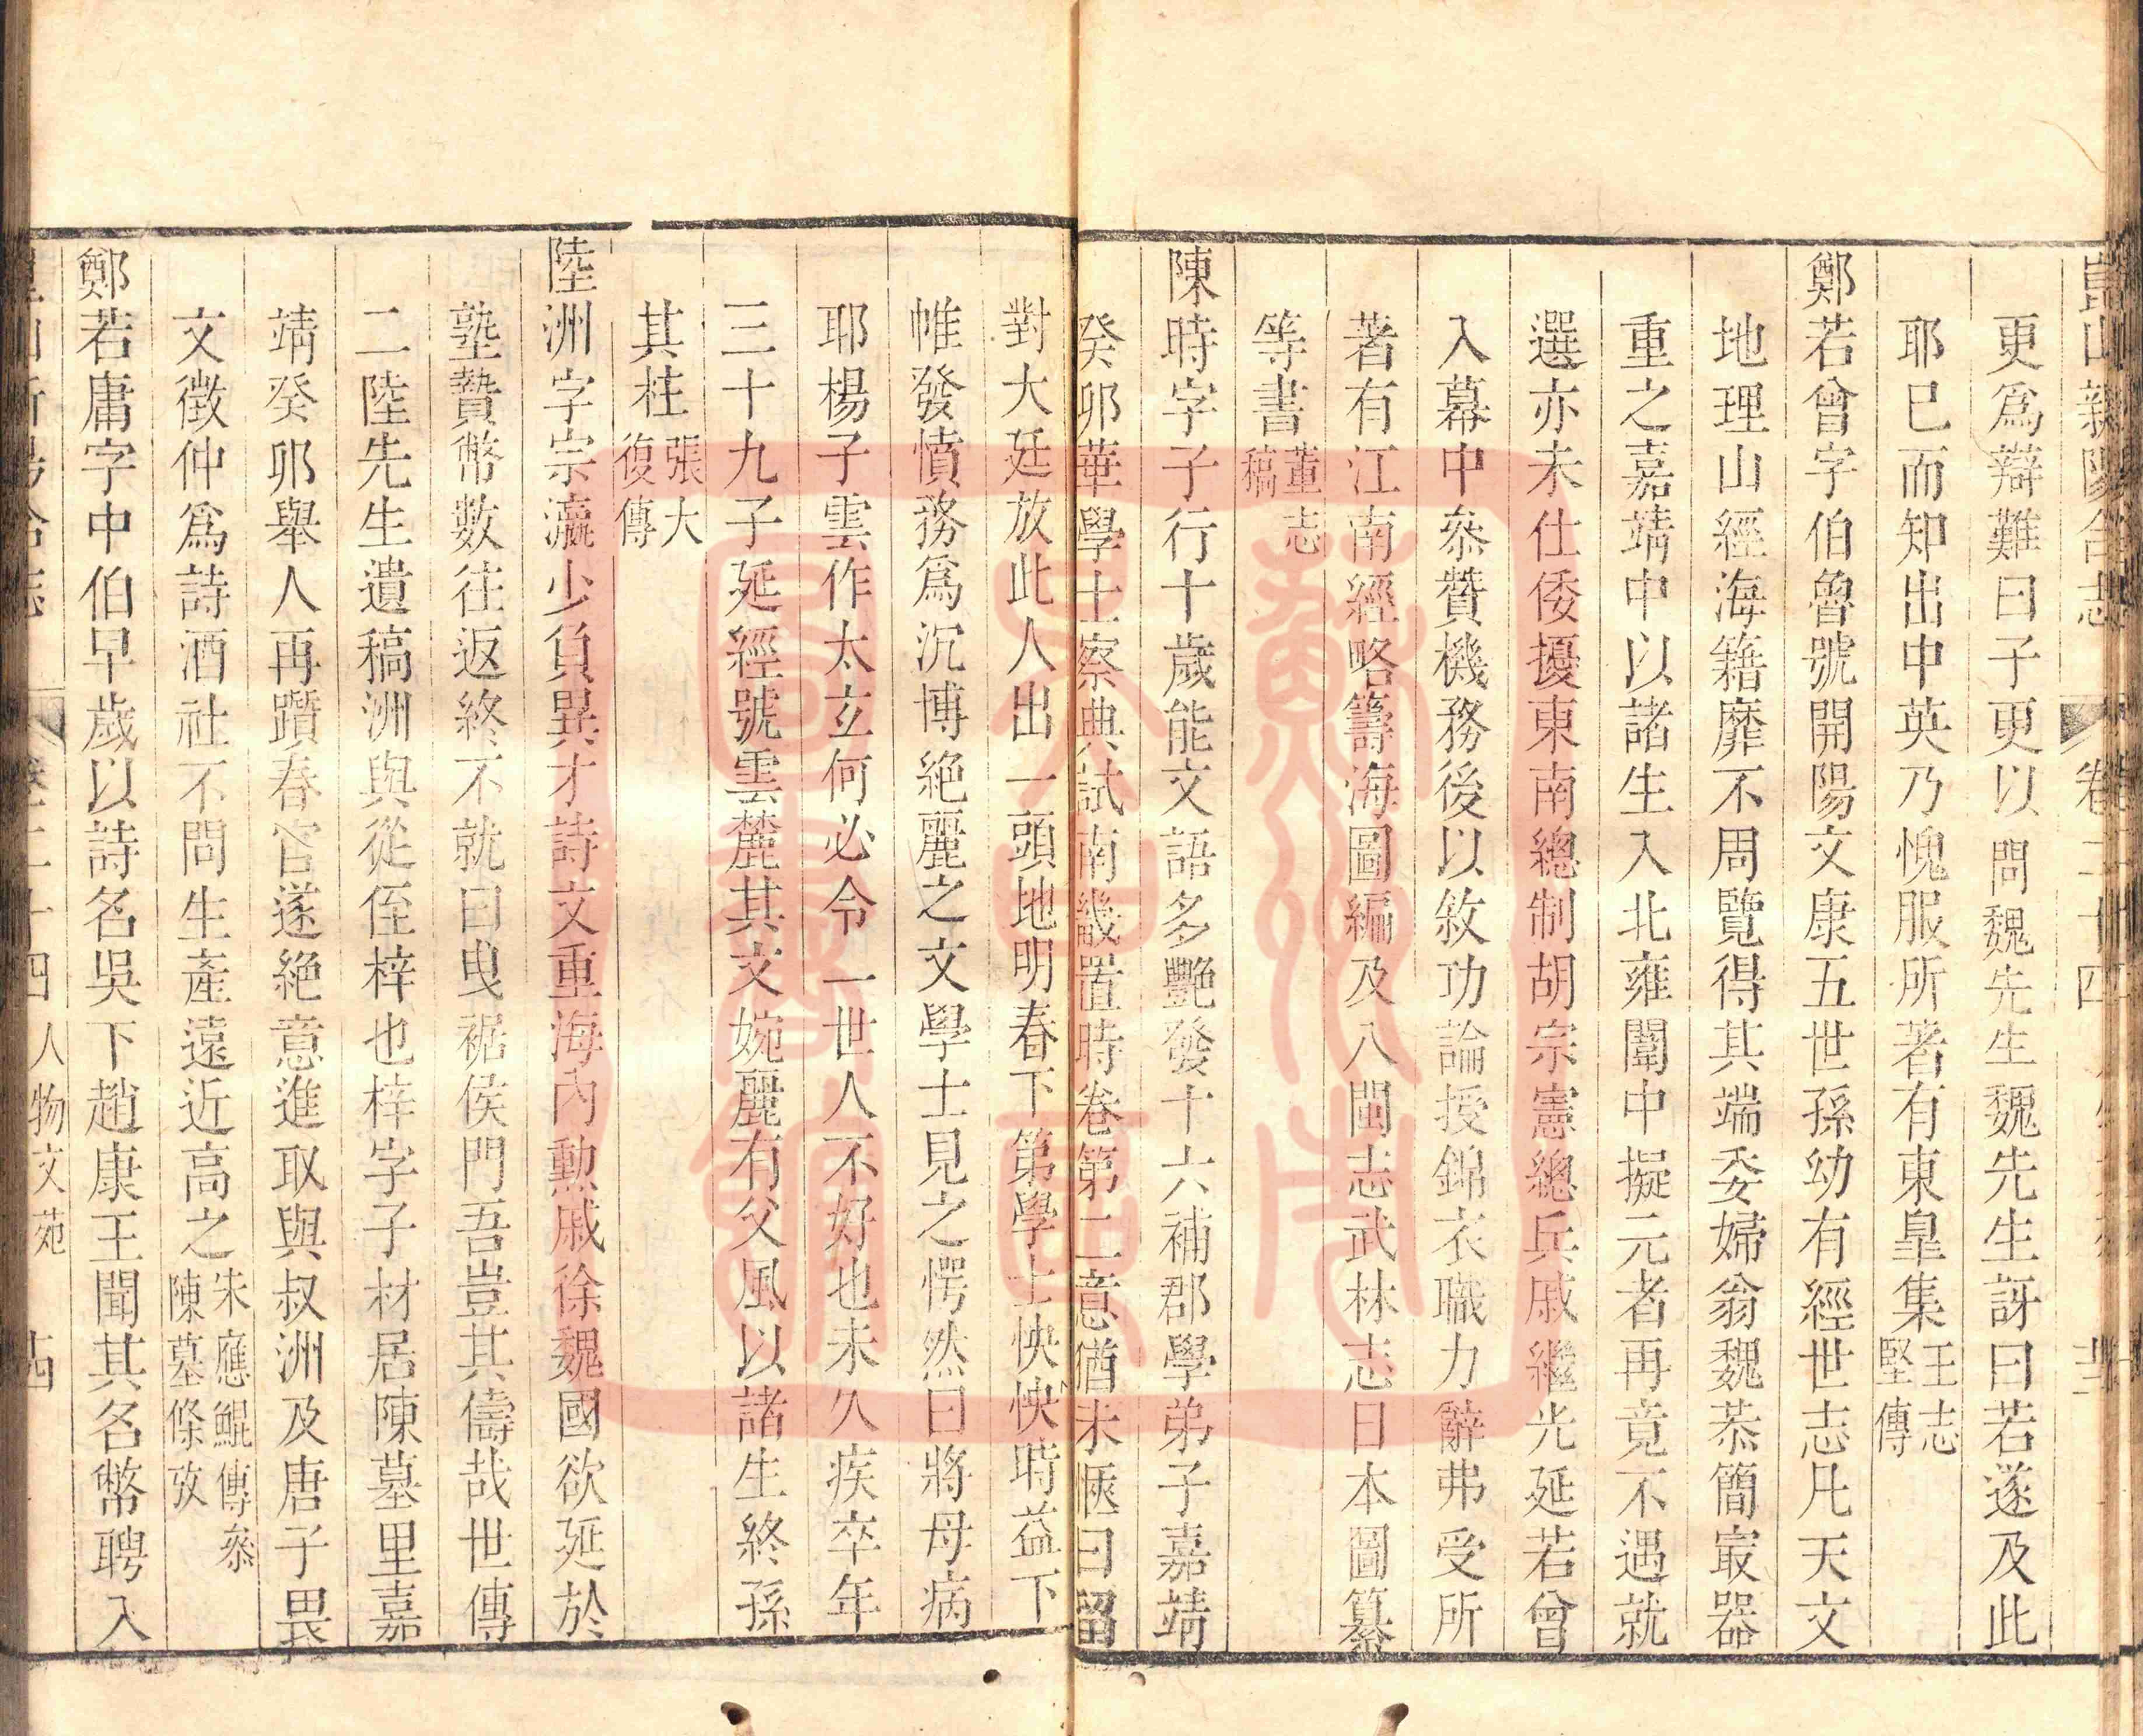 崑山新陽合志 卷二十四
更爲辯難曰子更以問魏先生魏先生訝曰若遂及此
耶已而知出中英乃愧服所著有東臯集王志堅傳
鄭若曾字伯魯號開陽文康五世孫幼有經世志凡天文
地理山經海籍靡不周覽得其端委婦翁魏恭簡㝡器
重之嘉靖中以諸生入北雍闈中擬元者再竟不遇就
選亦未仕倭擾東南總制胡宗憲總兵戚繼光延若曾
入幕中叅贊機務後以敘功論授錦衣職力辭弗受所
著有江南經略籌海圖編及八閩志武林志日本圖纂
等書董志稿
陳時字子行十歲能文語多艷發十六補郡學弟子嘉靖
癸卯華學士察典試南畿置時卷第二意猶未愜曰留
對大廷放此人出一頭地明春下第學士怏怏時益下
帷發憤務爲沉博絶麗之文學士見之愕然曰將母病
耶楊子雲作太玄何必令一世人不好也未久疾卒年
三十九子延經號雲麓其文婉麗有父風以諸生終孫
其柱張大復傳
陸洲字宗瀛少負異才詩文重海內勲戚徐魏國欲延於
塾贄幣數往返終不就曰曳裾侯門吾豈其儔哉世傳
二陸先生遺稿洲與從侄梓也梓字子材居陳墓里嘉
靖癸卯舉人再躓春官遂絶意進取與叔洲及唐子畏
文徵仲爲詩酒社不問生產遠近高之朱應鯤傳叅陳墓條攷
鄭若庸字中伯早歲以詩名吳下趙康王聞其名幣聘入
崑山新陽合志 卷二十四 人物文苑 十四